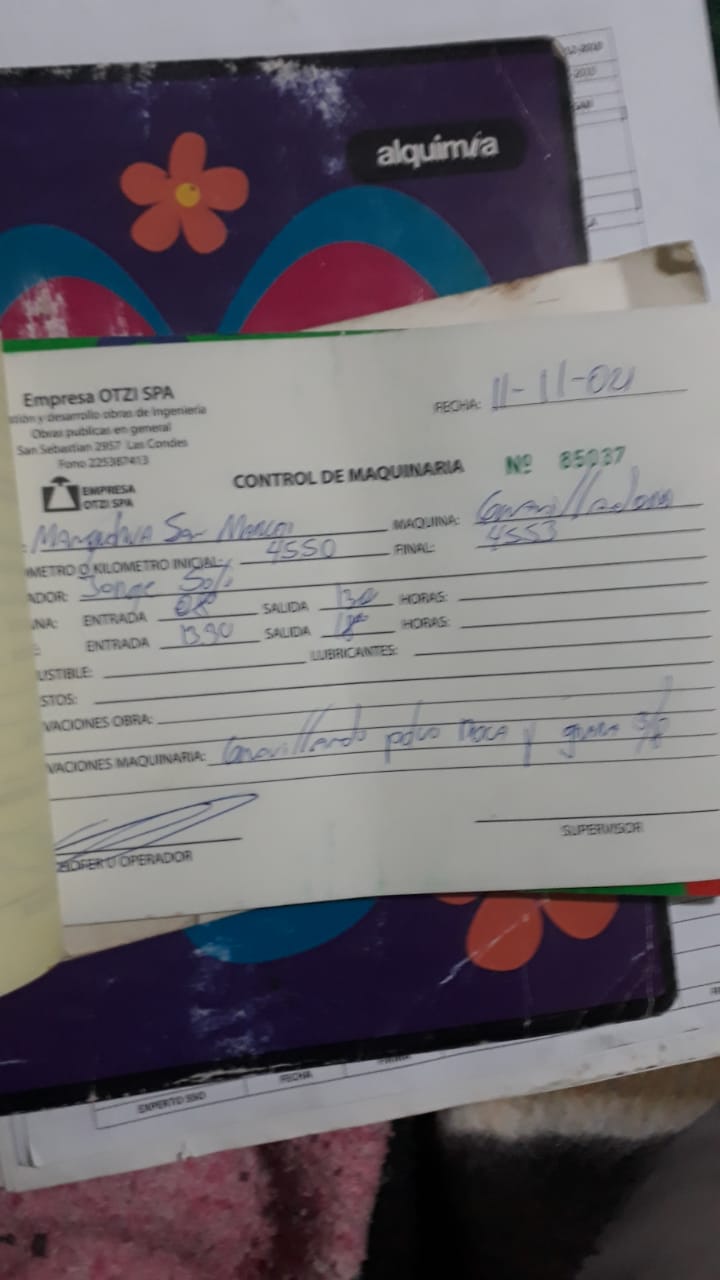 alquimia
Empresa OTZI SPA
y desarrollo obras de ingeniería
Obras publicas en general
San Sebastian 2957 Las Condes
Fono 225387413
EMPRESA
OTZI SPA
FECHA: 11-11-021
CONTROL DE MAQUINARIA Nº 85037
San MAQUINA: Gravilladora
METRO O KILOMETRO INICIAL: 4550 FINAL: 4553
ADOR: Jorge Solis
NA: ENTRADA 08 SALIDA 130 HORAS:
ENTRADA 1330 SALIDA 18 HORAS:
USTIBLE: LUBRICANTES:
STOS:
VACIONES OBRA:
VACIONES MAQUINARIA: Gravillando polvo roca y grava 3/8
HOFER U OPERADOR
SUPERVISOR
EXPERTO SSO FECHA FIRMA